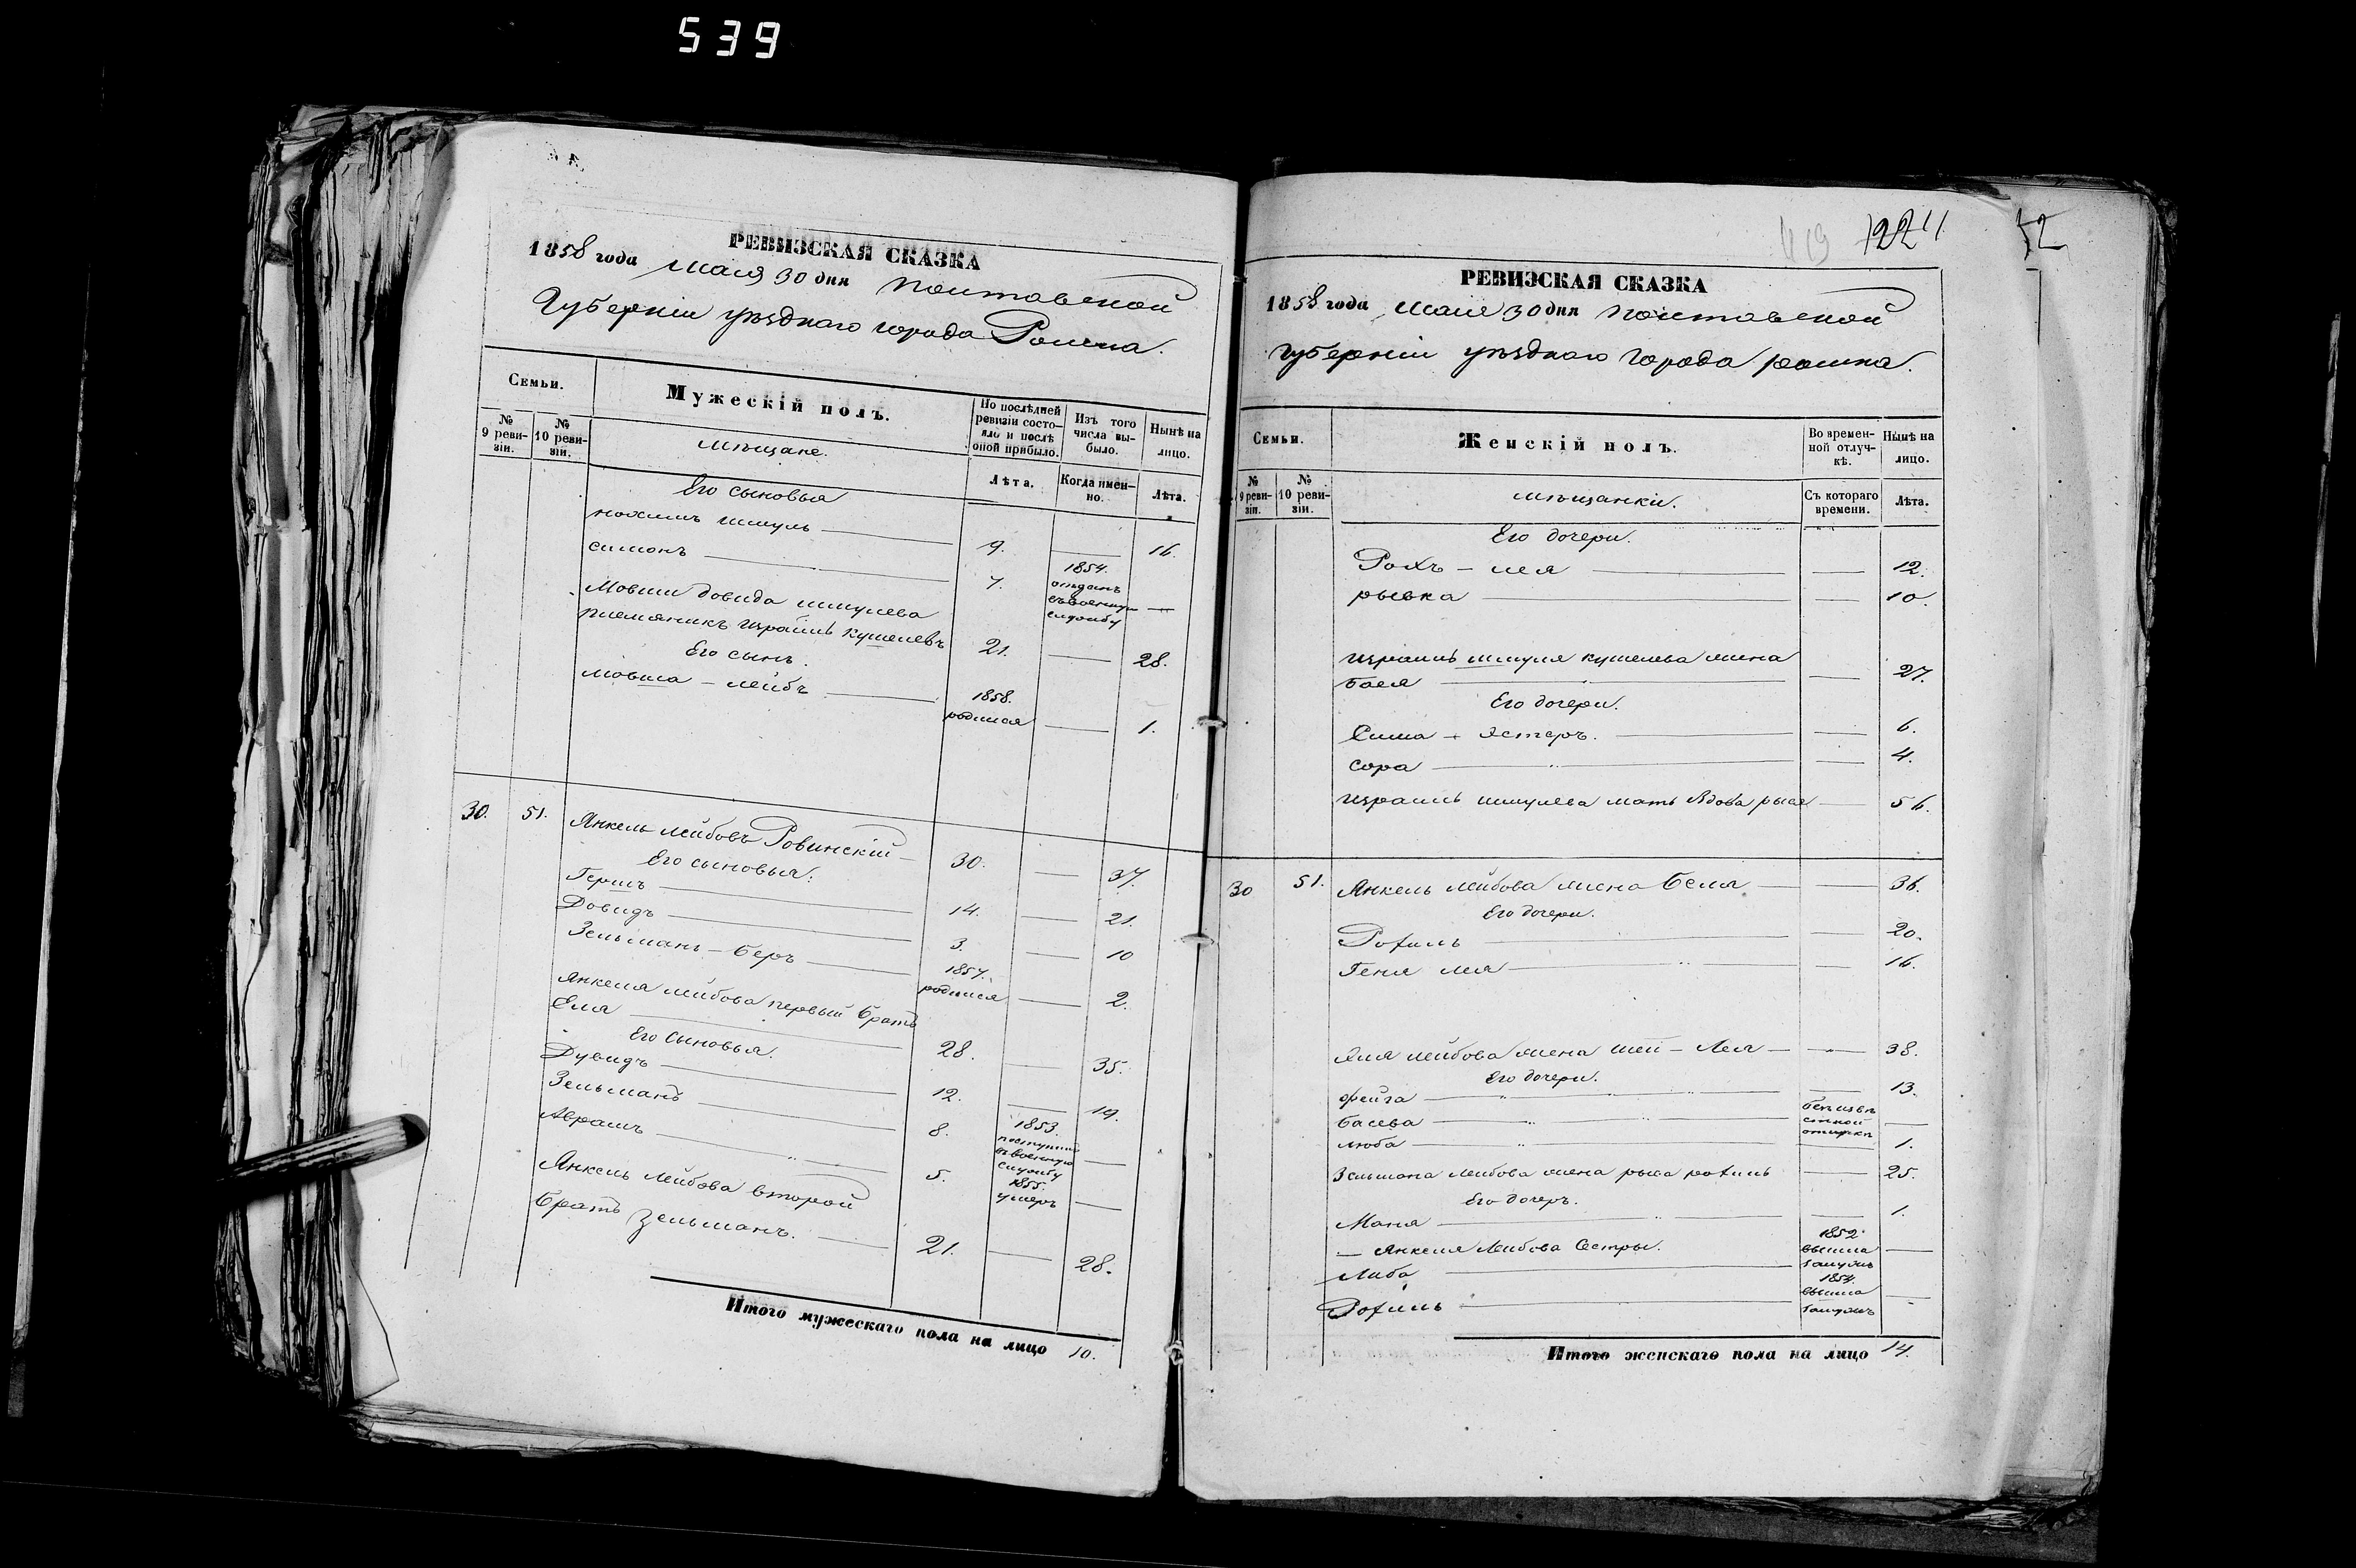 539
РЕВИЗСКАЯ СКАЗКА
1858 года Мая 30 дня Полтавской
Губерніи уѣзднаго города Ромна.
Семьи.
Мужескій полъ.
По послѣдней ревизіи состояло и послѣ оной прибыло.
Изъ того числа выбыло.
Нынѣ на лицо.
№ 9 ревизіи.
№ 10 ревизіи.
Мѣщане.
Лѣта.
Когда именно.
Лѣта.
Его сыновья
Нохимъ Шмуль 9. 16.
Симонъ 7. 1854. отданъ въ военную службу
Мовши Довида Шмулева
племяникъ Израиль Кушелевъ 21. 28.
Его сынъ.
Мовша - Лейбъ 1858. родился 1.
30. 51. Янкель Лейбовъ Ровинскій 30. 37.
Его сыновья:
Гершъ 14. 21.
Довидъ 3. 10
Зельманъ - Беръ 1857. родился 2.
Янкеля Лейбова первый братъ
Еля 28. 35.
Его сыновья.
Дувидъ 12. 19.
Зельманъ 8. 1853. поступилъ въ военную службу
Абрамъ 5. 1855. умеръ
Янкель Лейбова второй
братъ Зельманъ. 21. 28.
Итого мужескаго пола на лицо 10.
42
РЕВИЗСКАЯ СКАЗКА
1858 года Мая 30 дня Полтавской
Губерніи уѣзднаго города Ромна.
Семьи.
Женскій полъ.
Во временной отлучкѣ.
Нынѣ на лицо.
№ 9 ревизіи.
№ 10 ревизіи.
Мѣщанки.
Съ котораго времени.
Лѣта.
Его дочери.
Рохъ - Лея 12.
Рывка 10.
Израиль Шмуля Кушелева жена
Бася 27.
Его дочери.
Сима - Эстеръ. 6.
Сора 4.
Израиль Шмулева мать вдова Рыся 56.
30 51. Янкель Лейбова жена Бейля 36.
Его дочери.
Рохиль 20.
Геня Лея 16.
Эля Лейбова жена Шей - Лея 38.
Его дочери.
Фейга 13.
Басева безъизвѣстной отлучкѣ
Люба 1.
Зельмана Лейбова жена Рыса Рохиль 25.
Его дочеръ.
Маня 1.
Янкеля Лейбова Сестры.
Либа 1852 вышла замужъ
Рохиль 1854. вышла замужъ
Итого женскаго пола на лицо 14.